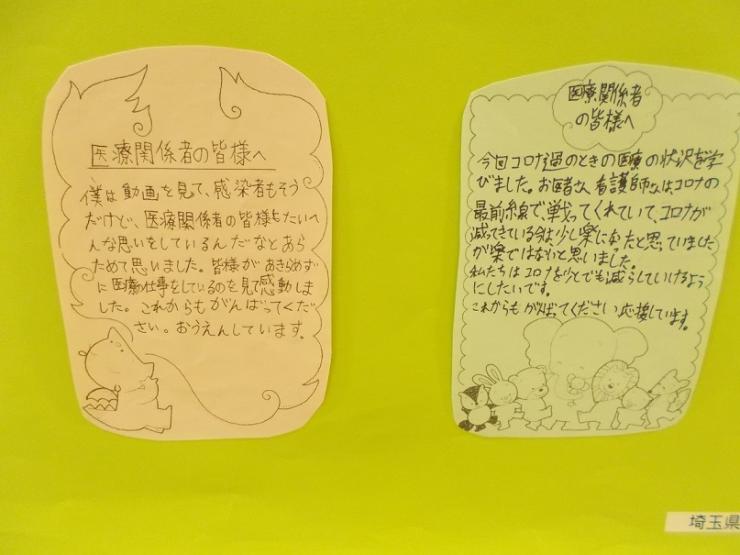 医療関係者の皆様へ
僕は動画を見て、感染者もそう
だけど、医療関係者の皆様もたいへ
んな思いをしているんだなとあら
ためて思いました。皆様があきらめず
に医療仕事をしているのを見て感動しま
した。これからもがんばってくだ
さい。おうえんしています。
医療関係者
の皆様へ
今回コロナ過のときの医療の状況を学
びました。お医者さん、看護師さんはコロナの
最前線で、戦ってくれていて、コロナが
減ってきている今は少し楽になったと思っていました
が楽ではないと思いました。
私たちはコロナを少しでも減らしていけるよう
にしたいです。
これからもがんばってください応援しています。
埼玉県